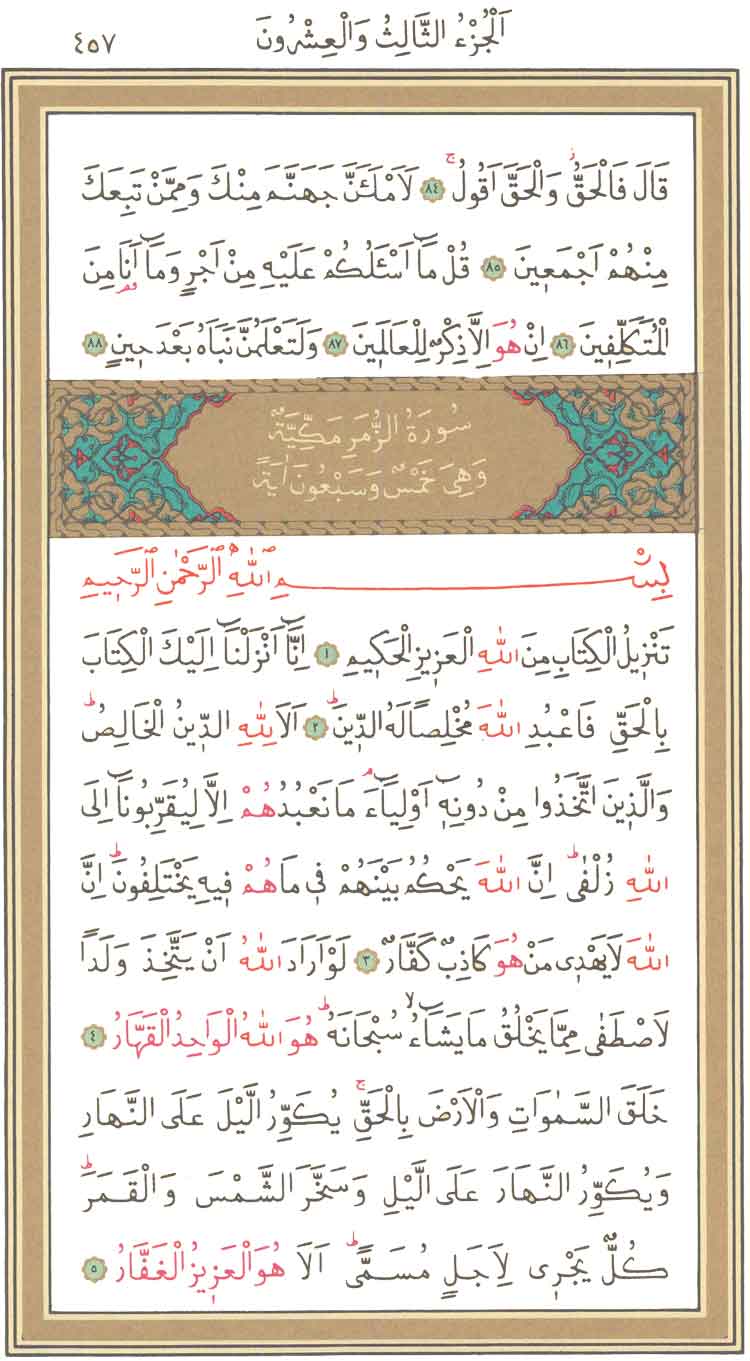 اَلْجُزْءُ الثَّالِثُ وَالْعِشْرُونَ ٤٥٧
قَالَ فَالْحَقُّ وَالْحَقَّ اَقُولُ ۚ ﴿٨٤﴾ لَاَمْلَـَٔنَّ جَهَنَّمَ مِنْكَ وَمِمَّنْ تَبِعَكَ
مِنْهُمْ اَجْمَعٖينَ ﴿٨٥﴾ قُلْ مَٓا اَسْـَٔلُكُمْ عَلَيْهِ مِنْ اَجْرٍ وَمَٓا اَنَا مِنَ
الْمُتَكَلِّفٖينَ ﴿٨٦﴾ اِنْ هُوَ اِلَّا ذِكْرٌ لِلْعَالَمٖينَ ﴿٨٧﴾ وَلَتَعْلَمُنَّ نَبَاَهُ بَعْدَ حٖينٍ ﴿٨٨﴾
سُورَةُ الزُّمَرِ مَكِّيَّةٌ
وَهِىَ خَمْسٌ وَسَبْعُونَ اٰيَةً
بِسْمِ اللّٰهِ الرَّحْمٰنِ الرَّحٖيمِ
تَنْزٖيلُ الْكِتَابِ مِنَ اللّٰهِ الْعَزٖيزِ الْحَكٖيمِ ﴿١﴾ اِنَّٓا اَنْزَلْنَٓا اِلَيْكَ الْكِتَابَ
بِالْحَقِّ فَاعْبُدِ اللّٰهَ مُخْلِصًا لَهُ الدّٖينَ ؕ ﴿٢﴾ اَلَا لِلّٰهِ الدّٖينُ الْخَالِصُ ؕ
وَالَّذٖينَ اتَّخَذُوا مِنْ دُونِهٖٓ اَوْلِيَٓاءَ ۘ مَا نَعْبُدُهُمْ اِلَّا لِيُقَرِّبُونَٓا اِلَى
اللّٰهِ زُلْفٰى ؕ اِنَّ اللّٰهَ يَحْكُمُ بَيْنَهُمْ فٖى مَا هُمْ فٖيهِ يَخْتَلِفُونَ ؕ اِنَّ
اللّٰهَ لَا يَهْدٖى مَنْ هُوَ كَاذِبٌ كَفَّارٌ ﴿٣﴾ لَوْ اَرَادَ اللّٰهُ اَنْ يَتَّخِذَ وَلَدًا
لَاصْطَفٰى مِمَّا يَخْلُقُ مَا يَشَٓاءُ ۙ سُبْحَانَهُ ؕ هُوَ اللّٰهُ الْوَاحِدُ الْقَهَّارُ ﴿٤﴾
خَلَقَ السَّمٰوَاتِ وَالْاَرْضَ بِالْحَقِّ ۚ يُكَوِّرُ الَّيْلَ عَلَى النَّهَارِ
وَيُكَوِّرُ النَّهَارَ عَلَى الَّيْلِ وَسَخَّرَ الشَّمْسَ وَالْقَمَرَ ؕ
كُلٌّ يَجْرٖى لِاَجَلٍ مُسَمًّى ؕ اَلَا هُوَ الْعَزٖيزُ الْغَفَّارُ ﴿٥﴾